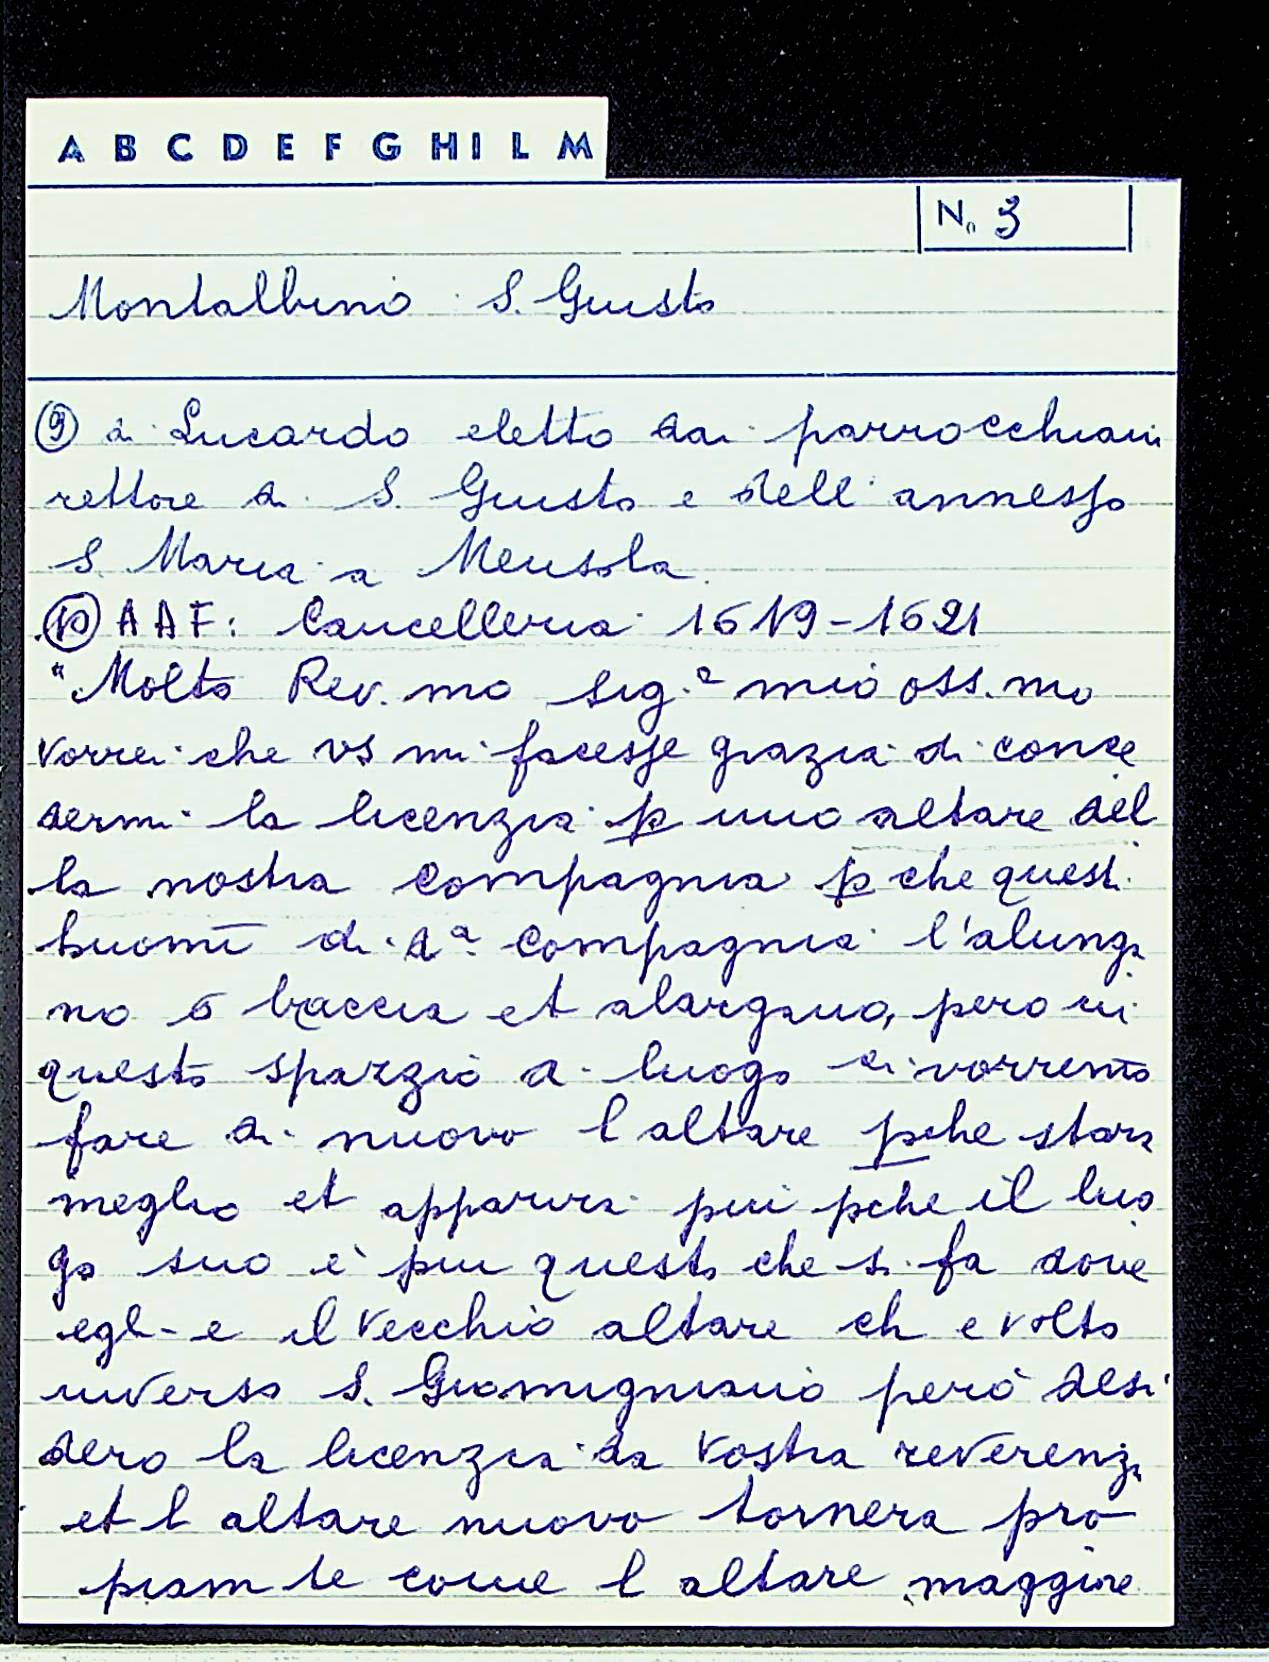 A B C D E F G H I L M
N. 3
Montalbino S. Giusto
⑨ di Lucardo eletto dai parrocchiani
rettore di S. Giusto e dell'annesso
S. Maria a Mensola
⑩ A A F: Cancelleria 1619-1621
"Molto Rev.mo Sig.e mio oss.mo
vorrei che VS mi facesse grazia di conce
dermi la licenzia p uno altare del
la nostra compagnia p che questi
huomī di da compagnia l'alunga
no 6 braccia et alargano, pero in
questo spazzio di luogo ci vorremo
fare di nuovo l altare pche stara
meglio et apparira piu pche il luo
go suo è piu questo che si fa dove
egli e il vecchio altare ch e volto
inverso S. Giomigniano però desi
dero la licenzia da vostra reverenza
et l altare nuovo tornera pro
piam te come l altare maggiore